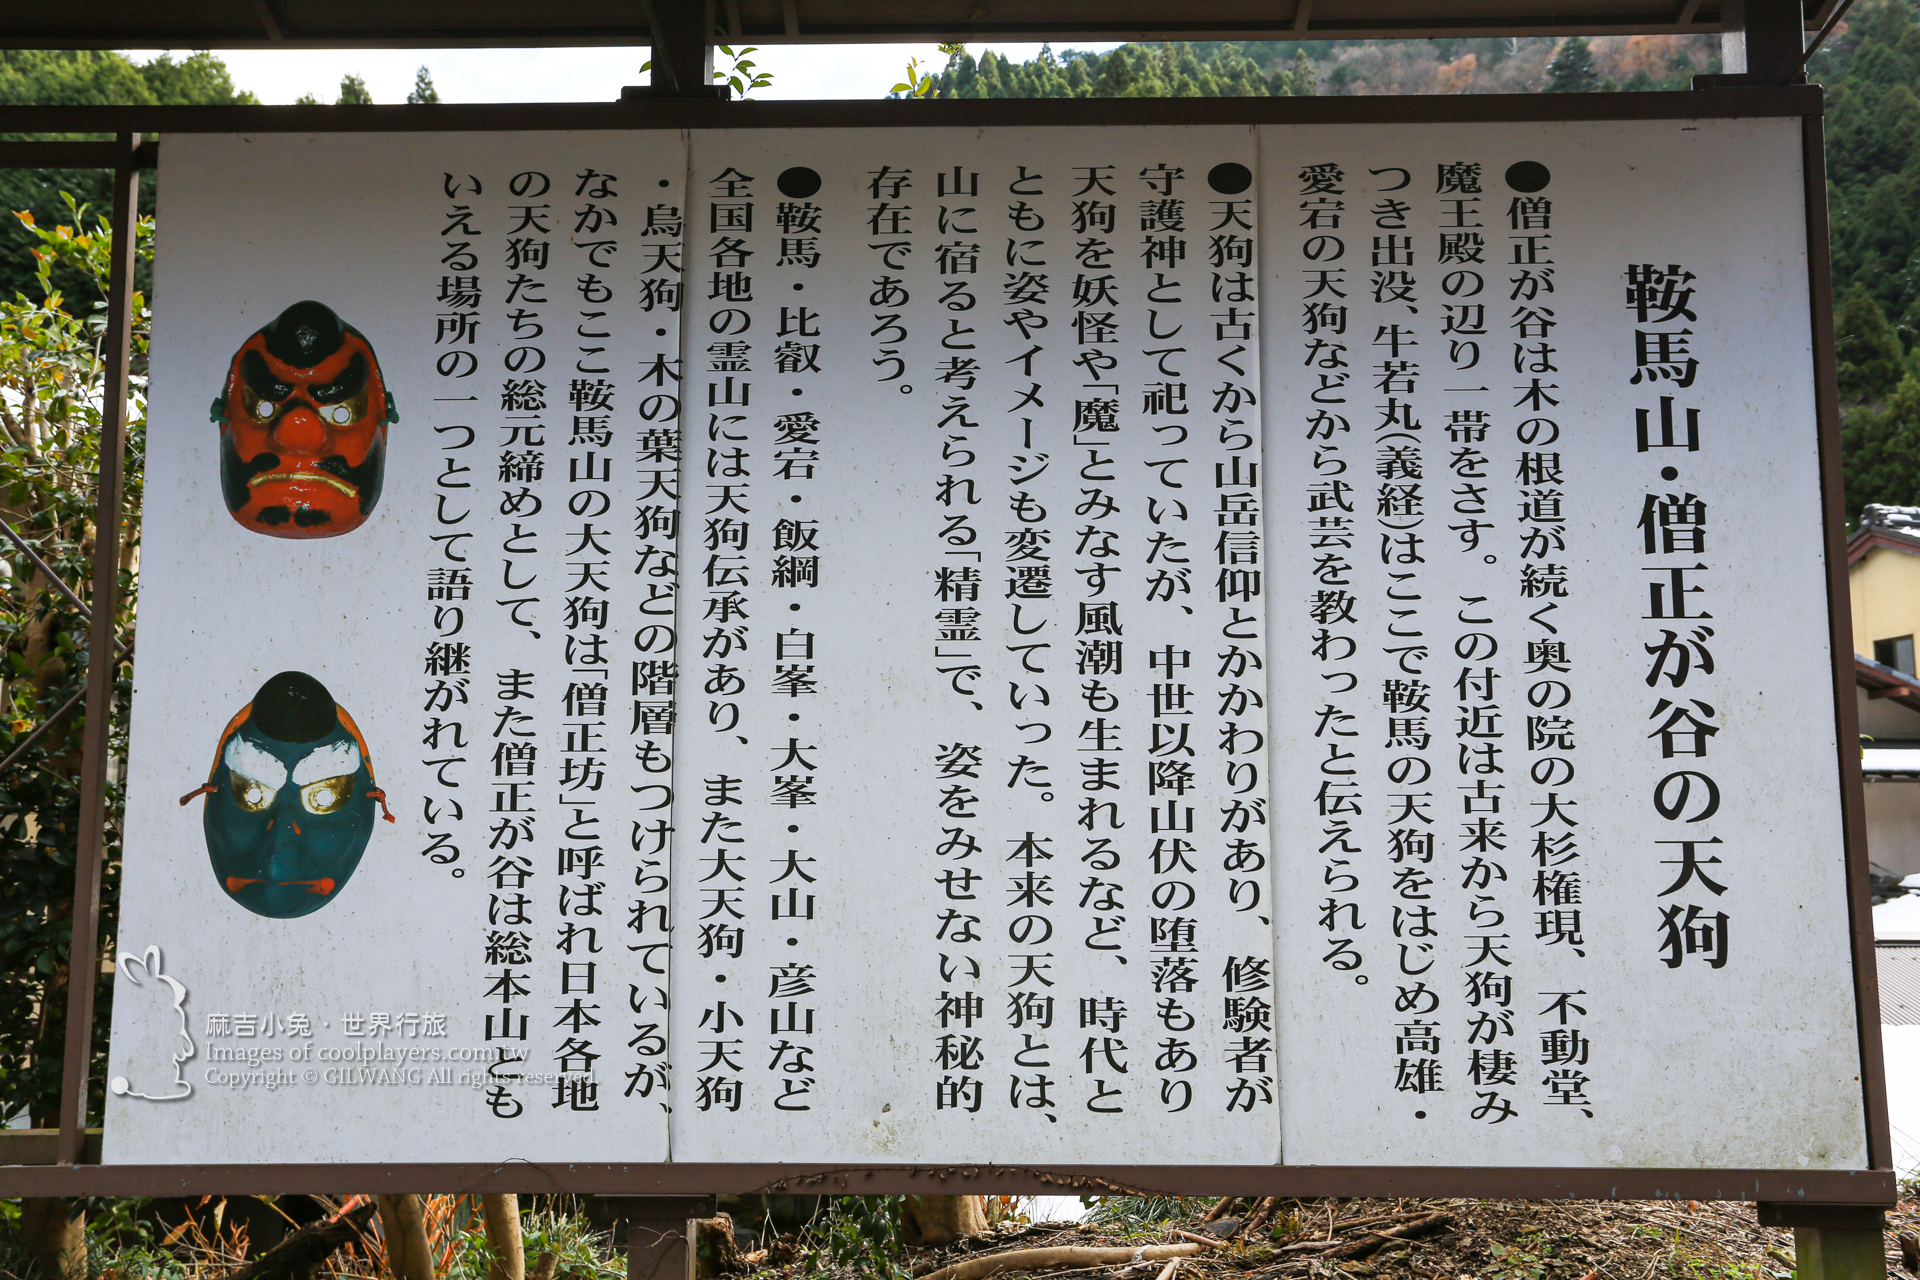 鞍馬山・僧正が谷の天狗
●僧正が谷は木の根道が続く奥の院の大杉権現、不動堂、
魔王殿の辺り一帯をさす。この付近は古来から天狗が棲み
つき出没、牛若丸(義経)はここで鞍馬の天狗をはじめ高雄・
愛宕の天狗などから武芸を教わったと伝えられる。
●天狗は古くから山岳信仰とかかわりがあり、修験者が
守護神として祀っていたが、中世以降山伏の堕落もあり
天狗を妖怪や「魔」とみなす風潮も生まれるなど、時代と
ともに姿やイメージも変遷していった。本来の天狗とは、
山に宿ると考えられる「精霊」で、姿をみせない神秘的
存在であろう。
●鞍馬・比叡・愛宕・飯綱・白峯・大峯・大山・彦山など
全国各地の霊山には天狗伝承があり、また大天狗・小天狗
・烏天狗・木の葉天狗などの階層もつけられているが、
なかでもここ鞍馬山の大天狗は「僧正坊」と呼ばれ日本各地
の天狗たちの総元締めとして、また僧正が谷は総本山とも
いえる場所の一つとして語り継がれている。
麻吉小兔・世界行旅
Images of coolplayers.com.tw
Copyright © GILWANG All rights reserved